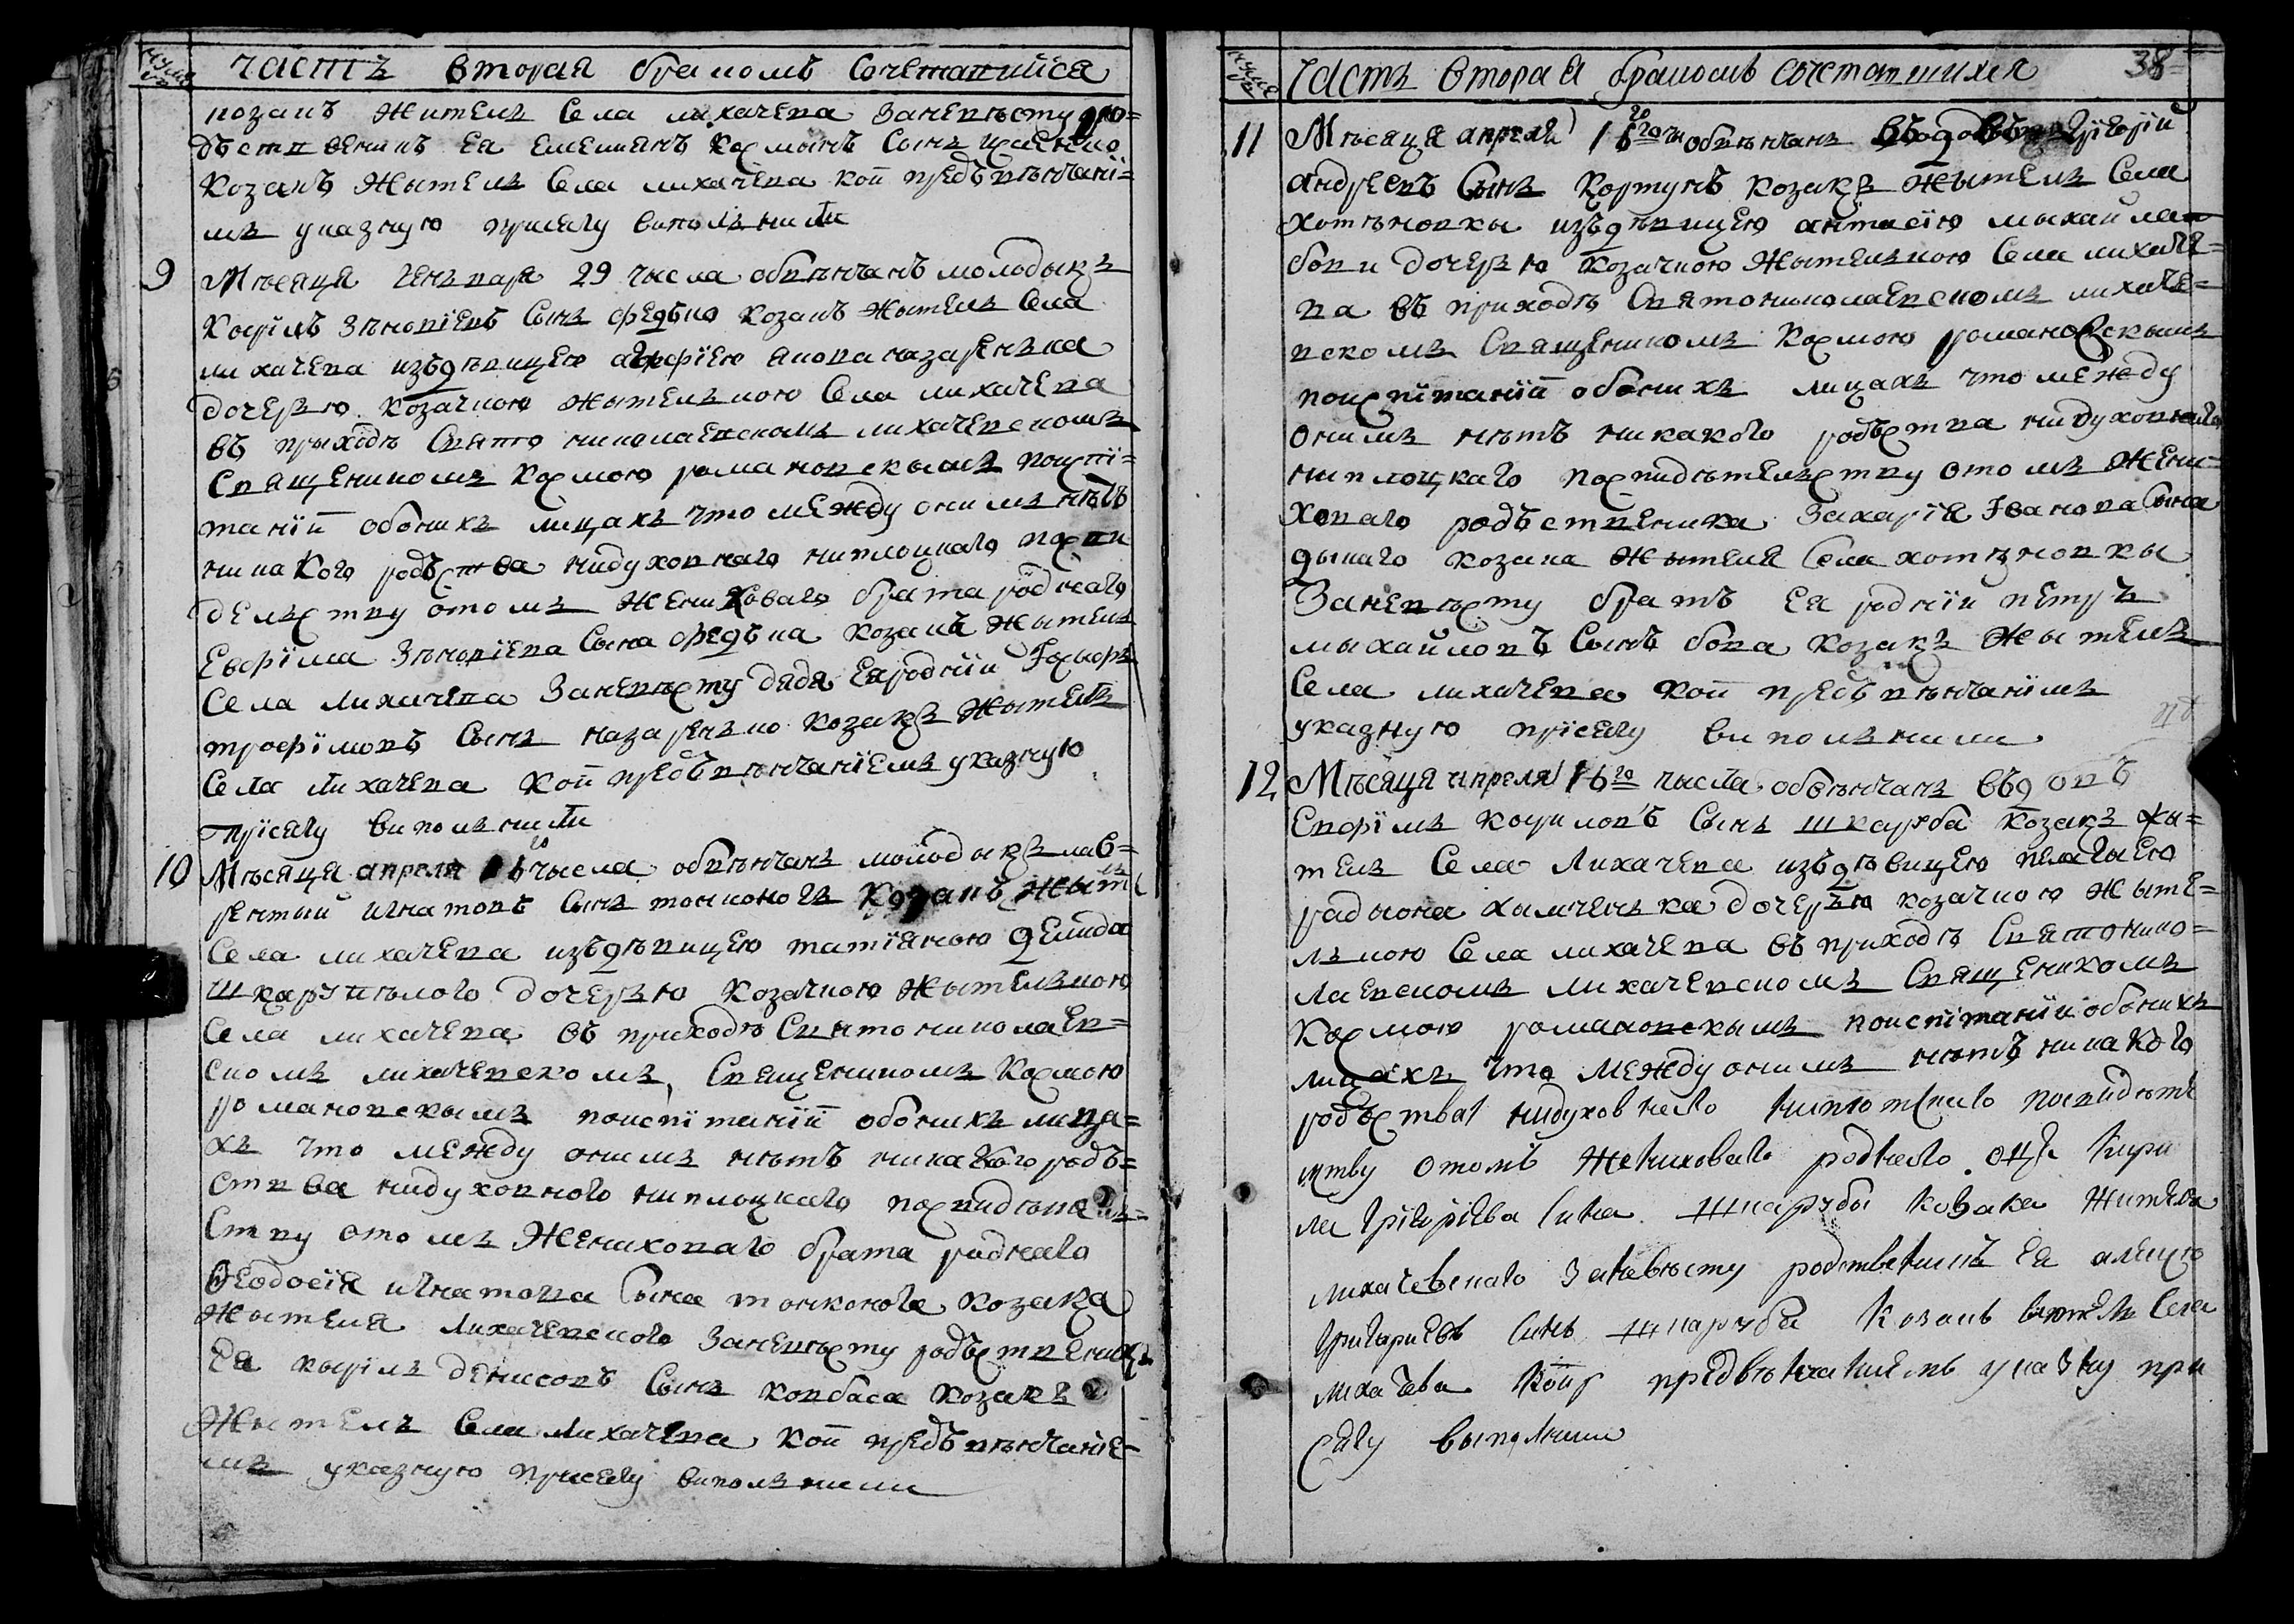 число
часть вторая бракомъ сочетавшийся
козакъ жители села лихачева заневѣсту ро=
дъственикъ ея емелиянъ козмынъ сынъ
козакъ жытель села лихачева кои предъ вѣнчани=
мь указную присягу виполънили
9 Мѣсяця генъваря 29 числа обвѣнчанъ молодыкъ
Кирилъ Зѣновіевъ сынъ федъко козакъ жытель села
лихачева изъдѣвицею якова назаренъка
дочерью козачкою жытелькою села лихачева
въ приходѣ свято николаевскомъ лихачевскомъ
священикомъ козмою романовскымъ поиспи=
таніи обоихъ лицахъ что между онимъ нѣтъ
никакого родъства нидуховнаго ниплоцкаго посви
дельству отомъ жениховаго брата роднаго
Евфіма Зѣновіева сына федъка козакъ жытель
села лихачева заневѣсту дядя ея роднии
трофімовъ сынъ назаренъко козакъ жытель
села лихачева кои предъ вѣнчаніемъ указную
присягу виполънили
10 Мѣсяця апреля 16го числа обвѣнчанъ молодыкъ лав=
рентий игнатовъ сынъ тонконогъ козакъ жытель
села лихачева изъдѣвицею татіяною демида
шкарупѣлого дочерью козачкою жытелькою
села лихачева въ приходѣ святониколаев=
скомъ лихачевскомъ священикомъ козмою
романовскымъ поиспитаніи обоихъ лица=
хъ что между онимъ нѣтъ никакого родъ=
ства нидуховного ниплоцкаго посвидѣтель=
ству отомъ жениховаго брата роднаго
Ѳеодосія игнатова сына тонконога козака
жытеля лихачевского заневѣсту родъственикъ
ея кирілъ денисовъ сынъ ковбаса козакъ
жытель села лихачева кои предъ вѣнчаніе=
мъ указную присягу виполънили
число
часть вторая бракомъ сочетавшихся 38
11 Мѣсяця апреля 16го обвѣнчанъ Григорій
андреевъ сынъ Кортунъ козакъ жытель села
хотѣновкы изъдѣвицею антасію мыхайла
бови дочерью козачкою жытелькою села лихаче=
ва въ приходѣ святониколаевскомъ лихаче=
вскомъ священикомъ козмою романовскымъ
поиспітаніи обоихъ лицахъ что между
онимъ нѣтъ никакого родъства нидуховнаго
ниплоцкаго посвидѣтельству отомъ жени=
ховаго родъственика Захарія Іванова сына
дынаго козака жытеля села хотѣновкы
Заневѣсту братъ ея родніи петръ
мыхайловъ сынъ бова козакъ жытель
села лихачева кои предъ вѣнчаніимъ
указную присягу виполънили
12 Мѣсяця апреля 16го числа обвѣнчанъ въдовъ
Евфімъ кириловъ сынъ шкаруба козакъ жы=
тель села Лихачева изъдѣвицею пелагыею
радиона хымченъка дочерью козачкою жыте=
лькою села лихачева въ приходѣ святонико=
лаевскомъ лихачевскомъ священикомъ
козмою романовскымъ поиспітаніи обоихъ
лицахъ что между онимъ нѣтъ никакого
родъства нидуховнаго посвидѣте
лству отомъ жениховаго роднаго отца Кири
ла Григоріева сина шкарубы козака жителя
лихачевскаго заневѣсту родственикъ ея
Григориевъ синъ шкаруба козакъ жителъ села
лихачева кои предвѣнчаниемъ указну при
сягу выполнили